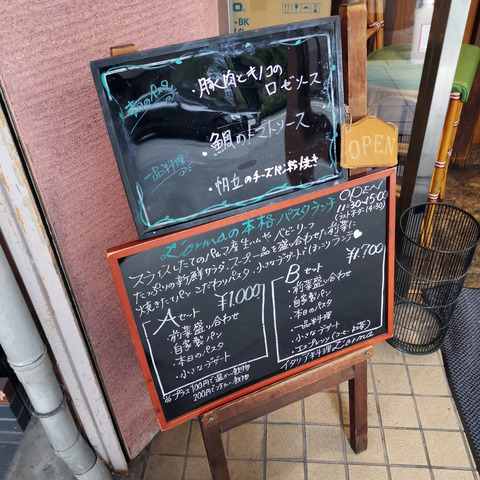 本日のパスタ
・豚肉とキノコの
ロゼソース
・鯛のトマトソース
一品料理
・帆立のチーズパン粉焼き
OPEN
L'ormaの本格パスタランチ
OPEN
11:30~15:00
(ラストオーダー14:30)
スライスしたてのパルマ産生ハムやベビーリーフ
たっぷりの新鮮サラダ、スープ一品を盛り合わせた前菜に
焼きたてパン、こだわりパスタ、小さなデザートでほっこりランチ
Aセット ¥1,000
・前菜盛り合わせ
・自家製パン
・本日のパスタ
・小さなデザート
Bセット ¥1,700
・前菜盛り合わせ
・自家製パン
・本日のパスタ
・一品料理
・小さなデザート
・エスプレッソ(コーヒーor紅茶)
プラス100円で温かい飲物
200円で冷たい飲物
イタリア料理 L'orma